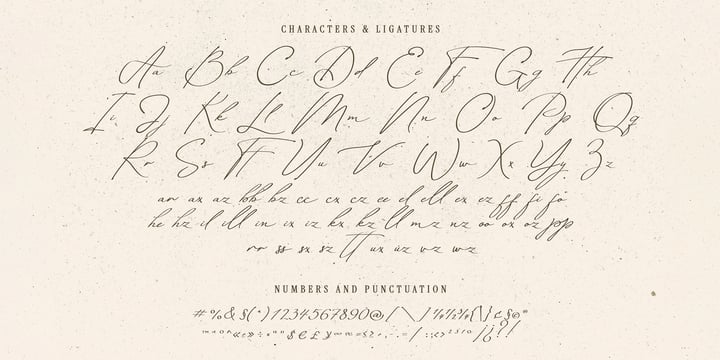 CHARACTERS & LIGATURES
Aa Bb Cc Dd Ee Ff Gg Hh
Ii Jj Kk Ll Mm Nn Oo Pp Qq
Rr Ss Tt Uu Vv Ww Xx Yy Zz
ar ax az bb bz cc cx cz ee el ell ex ez ff fi fo
he hz il ill in ix iz kx kz ll mz nz oo ox oz pp
rr ss sx sz tt ux uz vz wz
NUMBERS AND PUNCTUATION
#%&$(*)1234567890@/\